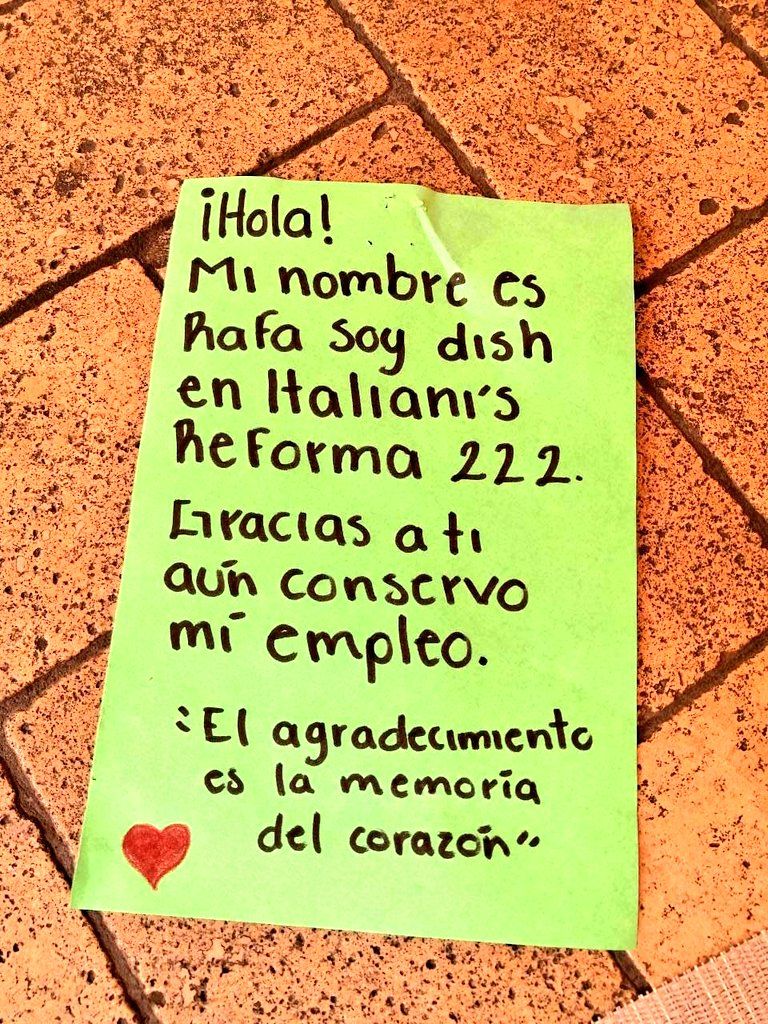 ¡Hola!
Mi nombre es
Rafa soy dish
en Italianni's
Reforma 222.
Gracias a ti
aún conservo
mi empleo.
"El agradecimiento
es la memoria
del corazón"